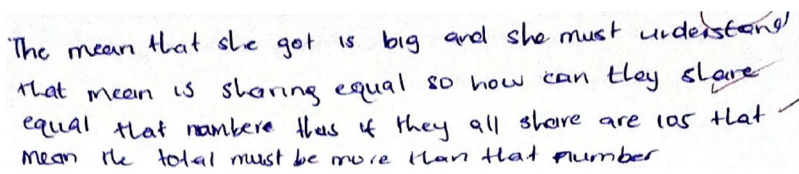 The mean that she got is big and she must understand
that mean is sharing equal so how can they share
equal that nambere thus if they all share are 105 that
mean the total must be more than that number